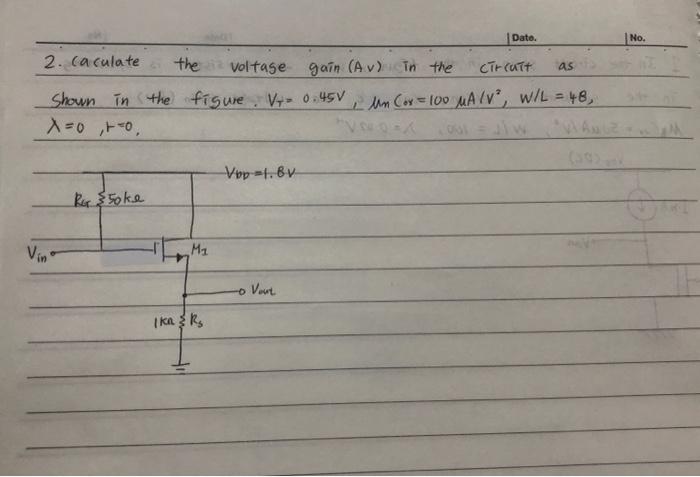 Date.
No.
2. calculate the voltage gain (Av) in the circuit as
shown in the figure. VT = 0.45V, μnCox = 100 μA/V², W/L = 48,
λ=0, r=0.
VDD = 1.8V
RG 50kΩ
Vin
M1
Vout
1kΩ Rs